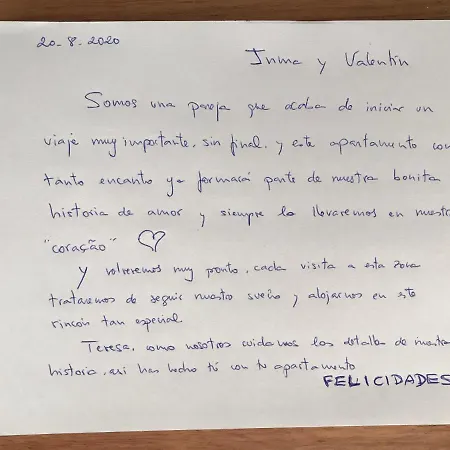 20-8-2020
Inma y Valentín
Somos una pareja que acaba de iniciar un
viaje muy importante, sin final, y este apartamento con
tanto encanto ya formará parte de nuestra bonita
historia de amor y siempre lo llevaremos en nuestr
"coração" ♡
Y volveremos muy pronto, cada visita a esta zona
trataremos de seguir nuestro sueño y alojarnos en este
rincón tan especial.
Teresa, como nosotros cuidamos los detalles de nuestra
historia, así has hecho tú con tu apartamento
FELICIDADES